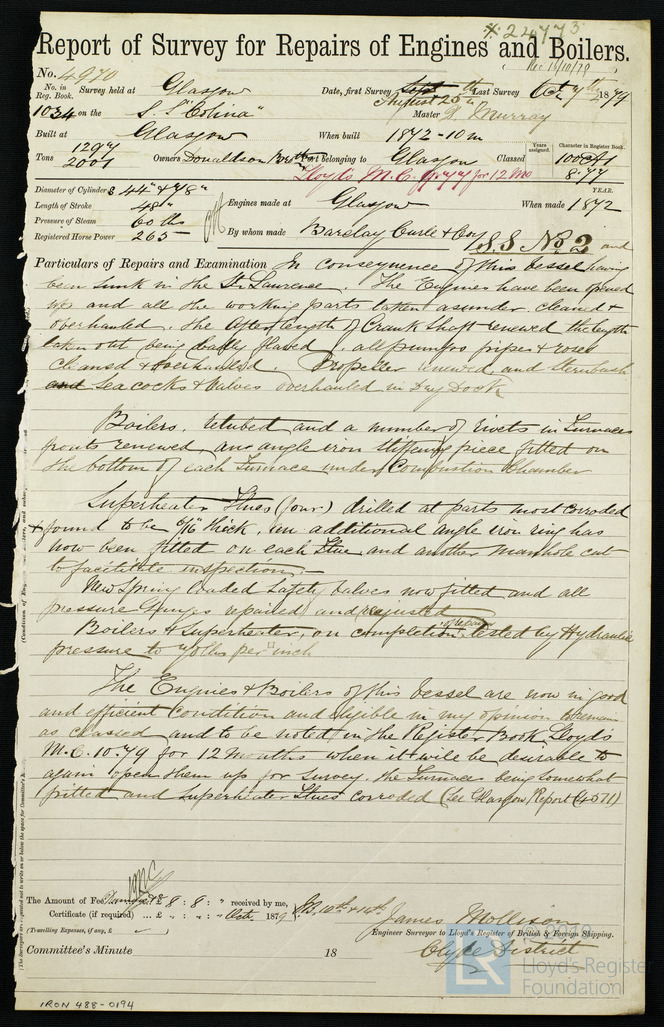 * 24773
Report of Survey for Repairs of Engines and Boilers.
Rec 16/10/79
No. 4970
No. in Reg. Book. Survey held at Glasgow Date, first Survey August 25th Last Survey Oct. 7th 1879
1034 on the S.S. "Colina" Master D. Murray
Built at Glasgow When built 1872-10m
Tons 1297 2001 Owners Donaldson Brothers Port belonging to Glasgow Classed 100A1
Years assigned. Character in Register Book.
8.77
Lloyd's M.C. 8.77 for 12 Mo
Diameter of Cylinders 44" & 78"
Length of Stroke 48"
Pressure of Steam 60 lbs
Registered Horse Power 265
Engines made at Glasgow When made 1872
YEAR.
By whom made Barclay Curle & Coy
S.S No. 2 and
Particulars of Repairs and Examination In consequence of this vessel having
been sunk in the St. Laurense. The Engines have been opened
up and all the working parts taken asunder, cleaned &
overhauled, the after length of Crank Shaft renewed the length
taken out being badly flawed, all pumps pipes & roses
cleaned & overhauled. Propeller renewed, and sternbush
and Sea cocks & Valves overhauled in Dry Dock
Boilers, retubed and a number of rivets in Furnace
fronts renewed and angle iron stiffening piece fitted on
the bottom of each Furnace under Combustion Chamber
Superheater Flues (four) drilled at parts most corroded
& found to be 6/16 thick, an additional angle iron ring has
now been fitted on each Flue and another manhole cut
to facilitate inspection
New Spring loaded Safety Valves now fitted and all
pressure Gauges repaired and readjusted
Boilers & Superheater, on completion of repairs tested by Hydraulic
pressure to 90 lbs per "inch
The Engines & Boilers of this Vessel are now in good
and efficient condition and eligible in my opinion to remain
as classed and to be noted in the Register Book Lloyds
M.C. 10.79 for 12 Months when it will be desirable to
again open them up for survey, the Furnaces being somewhat
pitted and Superheater Flues corroded (See Glasgow Report 4071)
The Amount of Fee £ 8 : 8 : " received by me,
Certificate (if required) ... £ " : " : " Oct. 1879
(Travelling Expenses, if any, £
James Mollison
Engineer Surveyor to Lloyd's Register of British & Foreign Shipping.
Clyde District
Committee's Minute 18
LR
Lloyd's Register
Foundation
IRON 488-0194